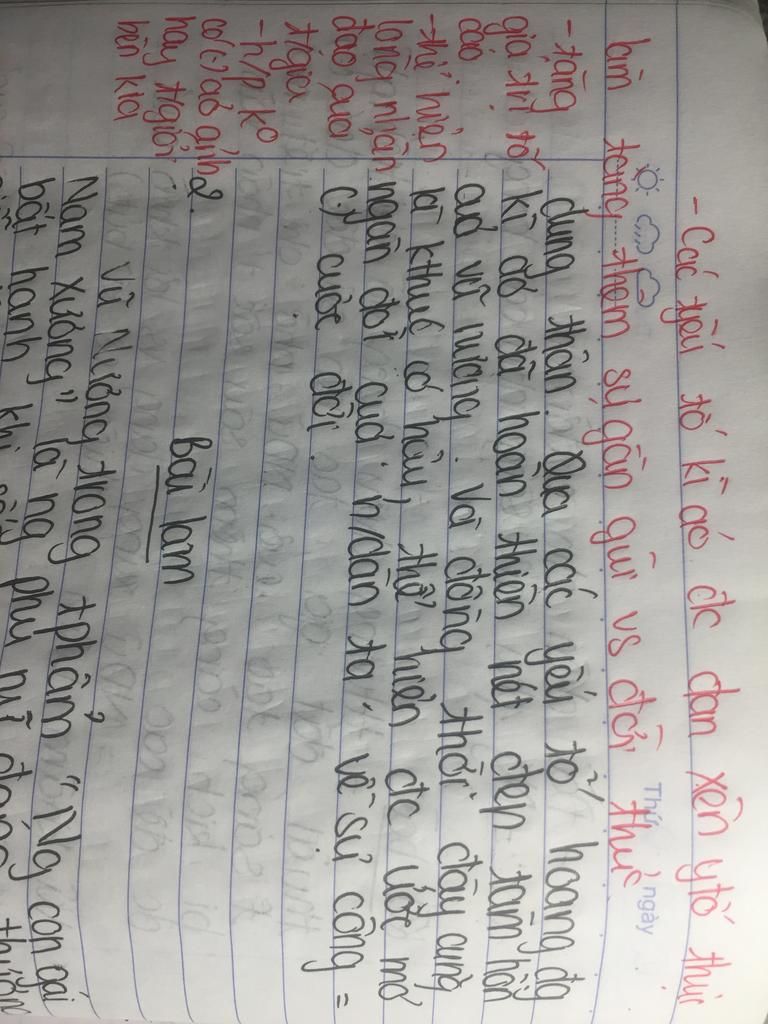 - Các yếu tố kì ảo đc đan xen ytố thực
làm tăng thêm sự gần gũi vs đời thực
Thứ ngày
- tăng
giá trị tố
cáo
- thể hiện
lòng nhân
đạo qua
t/giới
- h/p k°
có (~) ảo ảnh
hay t/giới
bên kia
dung thân. Qua các yếu tố hoang đg
kì ảo đã hoàn thiện nét đẹp tâm hồn
của vũ nương. Và đồng thời đây cũng
là kthúc có hậu, thể hiện đc ước mơ
ngàn đời của n/dân ta về sự công =
(~) cuộc đời.
2.
Bài làm
Vũ Nương trong tphẩm "Ng con gái
Nam Xương" là ng phụ nữ
bất hạnh khi